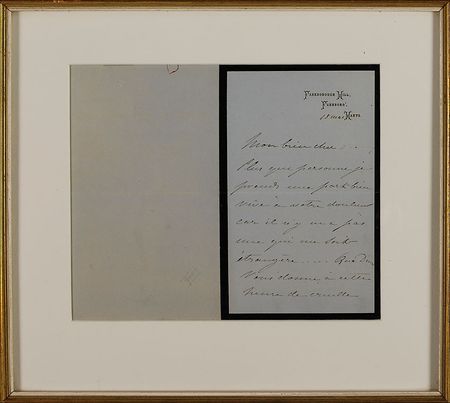 Farnborough Hill,
Farnboro',
18 mai Hants.
Mon bien cher
Plus que personne je
prends une part bien
vive à votre douleur
car il n'y en a pas
une qui me soit
étrangère.... Que Dieu
vous donne à cette
heure de cruelle